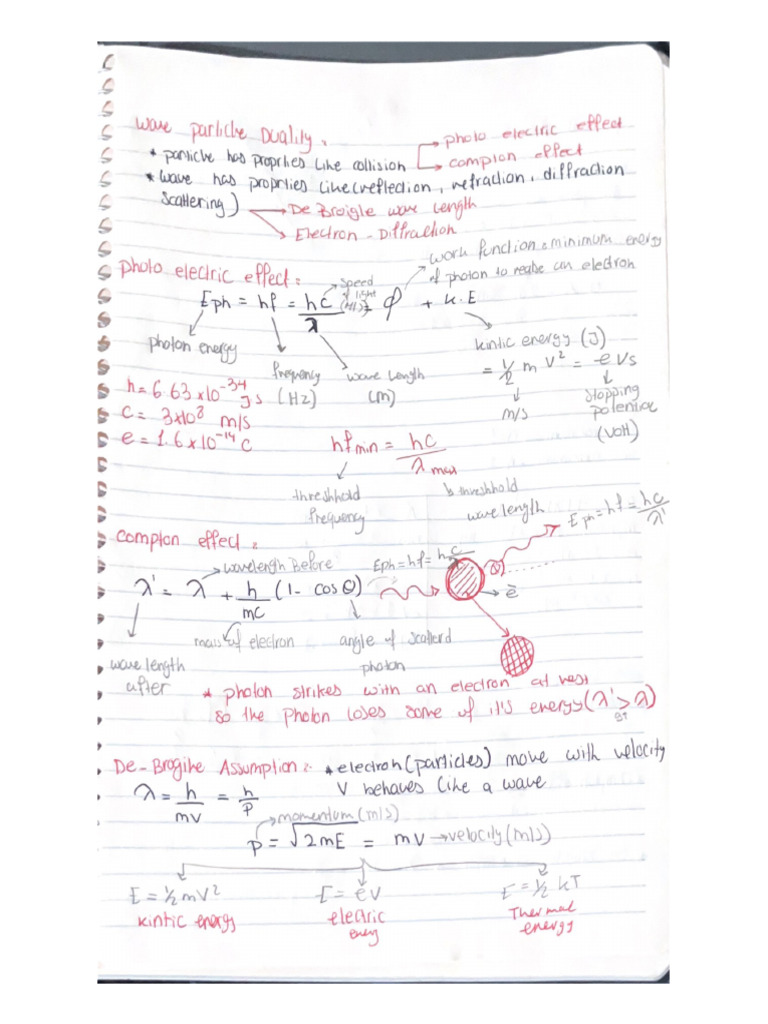 wave particle Duality :
* particle has proprties like collision → photo electric effect
→ compton effect
* wave has proprties like (reflection, refraction, diffraction
scattering) → De Broigle wave length
→ Electron - Diffraction
photo electric effect :
work function : minimum energy
of photon to realse an electron
speed of light (m/s)
Eph = hf = hc/λ = φ + K.E
photon energy
frequency (Hz)
wave length (m)
kintic energy (J)
= 1/2 m V² = eVs
m/s
stopping potential (volt)
h = 6.63x10⁻³⁴ J s
c = 3x10⁸ m/s
e = 1.6x10⁻¹⁴ C
hfmin = hc/λmax
threshhold frequency
threshhold wave length
Eph = hf = hc/λ'
compton effect :
wavelength Before
Eph = hf = hc/λ
λ' = λ + h/mc (1 - cosθ)
θ
e⁻
mass of electron
angle of scatterd photon
wave length after
* photon strikes with an electron at rest
so the photon loses some of it's energy (λ' > λ)
De-Brogike Assumption : * electron (particles) move with velocity
V behaves like a wave
λ = h/mv = h/p
momentum (m/s)
p = √2mE = mv → velocity (m/s)
E = 1/2 mV²
kintic energy
E = eV
electric energy
E = 1/2 kT
Thermal energy